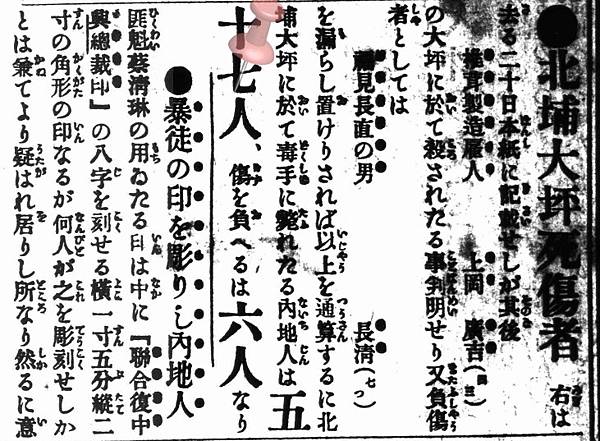 ●北埔大坪死傷者 右は
去る二十日本紙に記載せしが其後
椎茸製造雇人 上岡 廣吉
の大坪に於て殺されたる事判明せり又負傷
者としては
見長直の男 長清(七つ)
を漏らし置けりされば以上を通算するに北
埔大坪に於て毒手に斃れたる內地人は五
十七人、傷を負へるは六人なり
●暴徒の印を彫りし內地人
匪魁蔡淸琳の用ゐたる印は中に『聯合復中
興總裁印』の八字を刻せる橫一寸五分縱二
寸の角形の印なるが何人が之を彫刻せしか
とは兼てより疑はれ居りし所なり然るに意